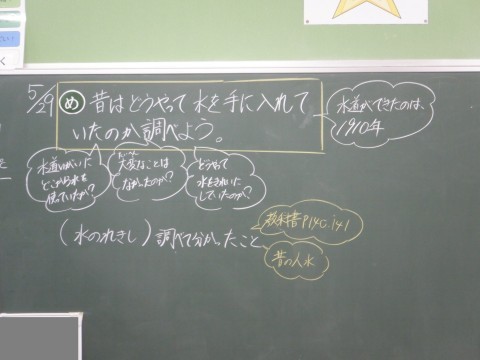 5/29
め 昔はどうやって水を手に入れて
いたのか調べよう。
水道ができたのは、
1910年
水道いがいに
どこから水を
使っていたか?
大変なことは
なかったのか?
どうやって
水をきれいに
していたのか?
(水のれきし)調べて分かったこと
教科書P140.141
昔の人水